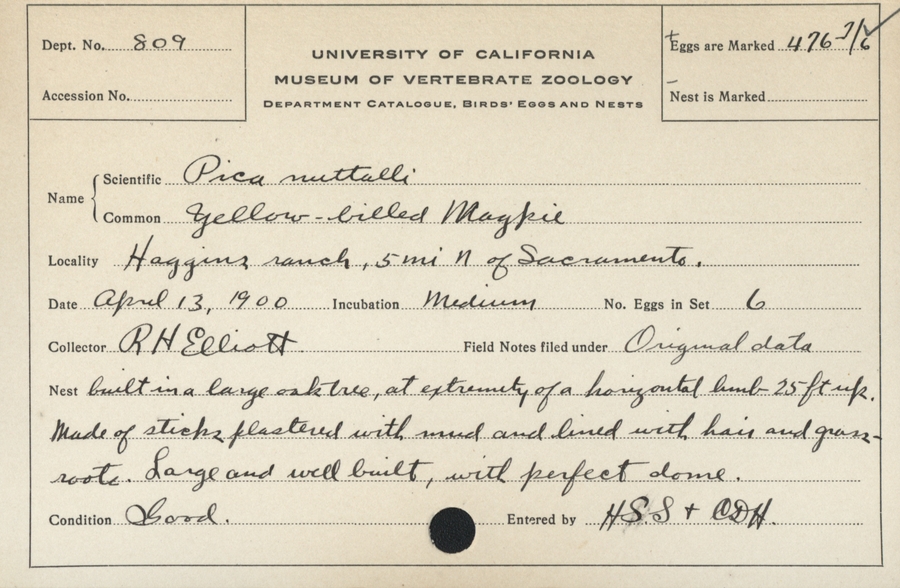 Dept. No. 809
Accession No.
UNIVERSITY OF CALIFORNIA
MUSEUM OF VERTEBRATE ZOOLOGY
DEPARTMENT CATALOGUE, BIRDS' EGGS AND NESTS
Eggs are Marked 476-7/6
Nest is Marked
Name
Scientific Pica nuttalli
Common Yellow-billed Magpie
Locality Haggins ranch, 5 mi N of Sacramento.
Date April 13, 1900 Incubation Medium No. Eggs in Set 6
Collector R H Elliott Field Notes filed under Original data
Nest built in a large oak tree, at extremity of a horizontal limb 25 ft up.
Made of sticks plastered with mud and lined with hair and grass-
roots. Large and well built, with perfect dome.
Condition Good. Entered by H.S.S + CDH.